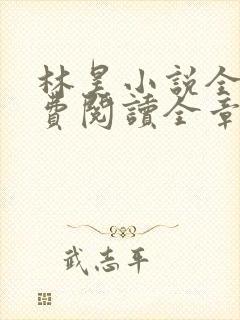 林昊小說全
費閱讀全章
武志平